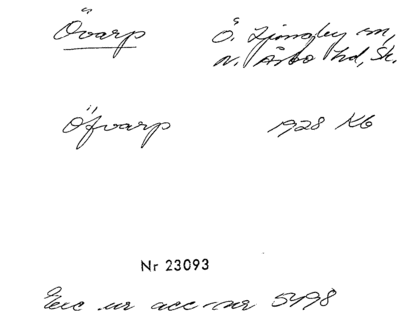 Övarp Ö. Ljungby sn,
N. Åsbo hd, Sk.
Öfvarp 1928 Kb
Nr 23093
Exc ur acc-nr 5498